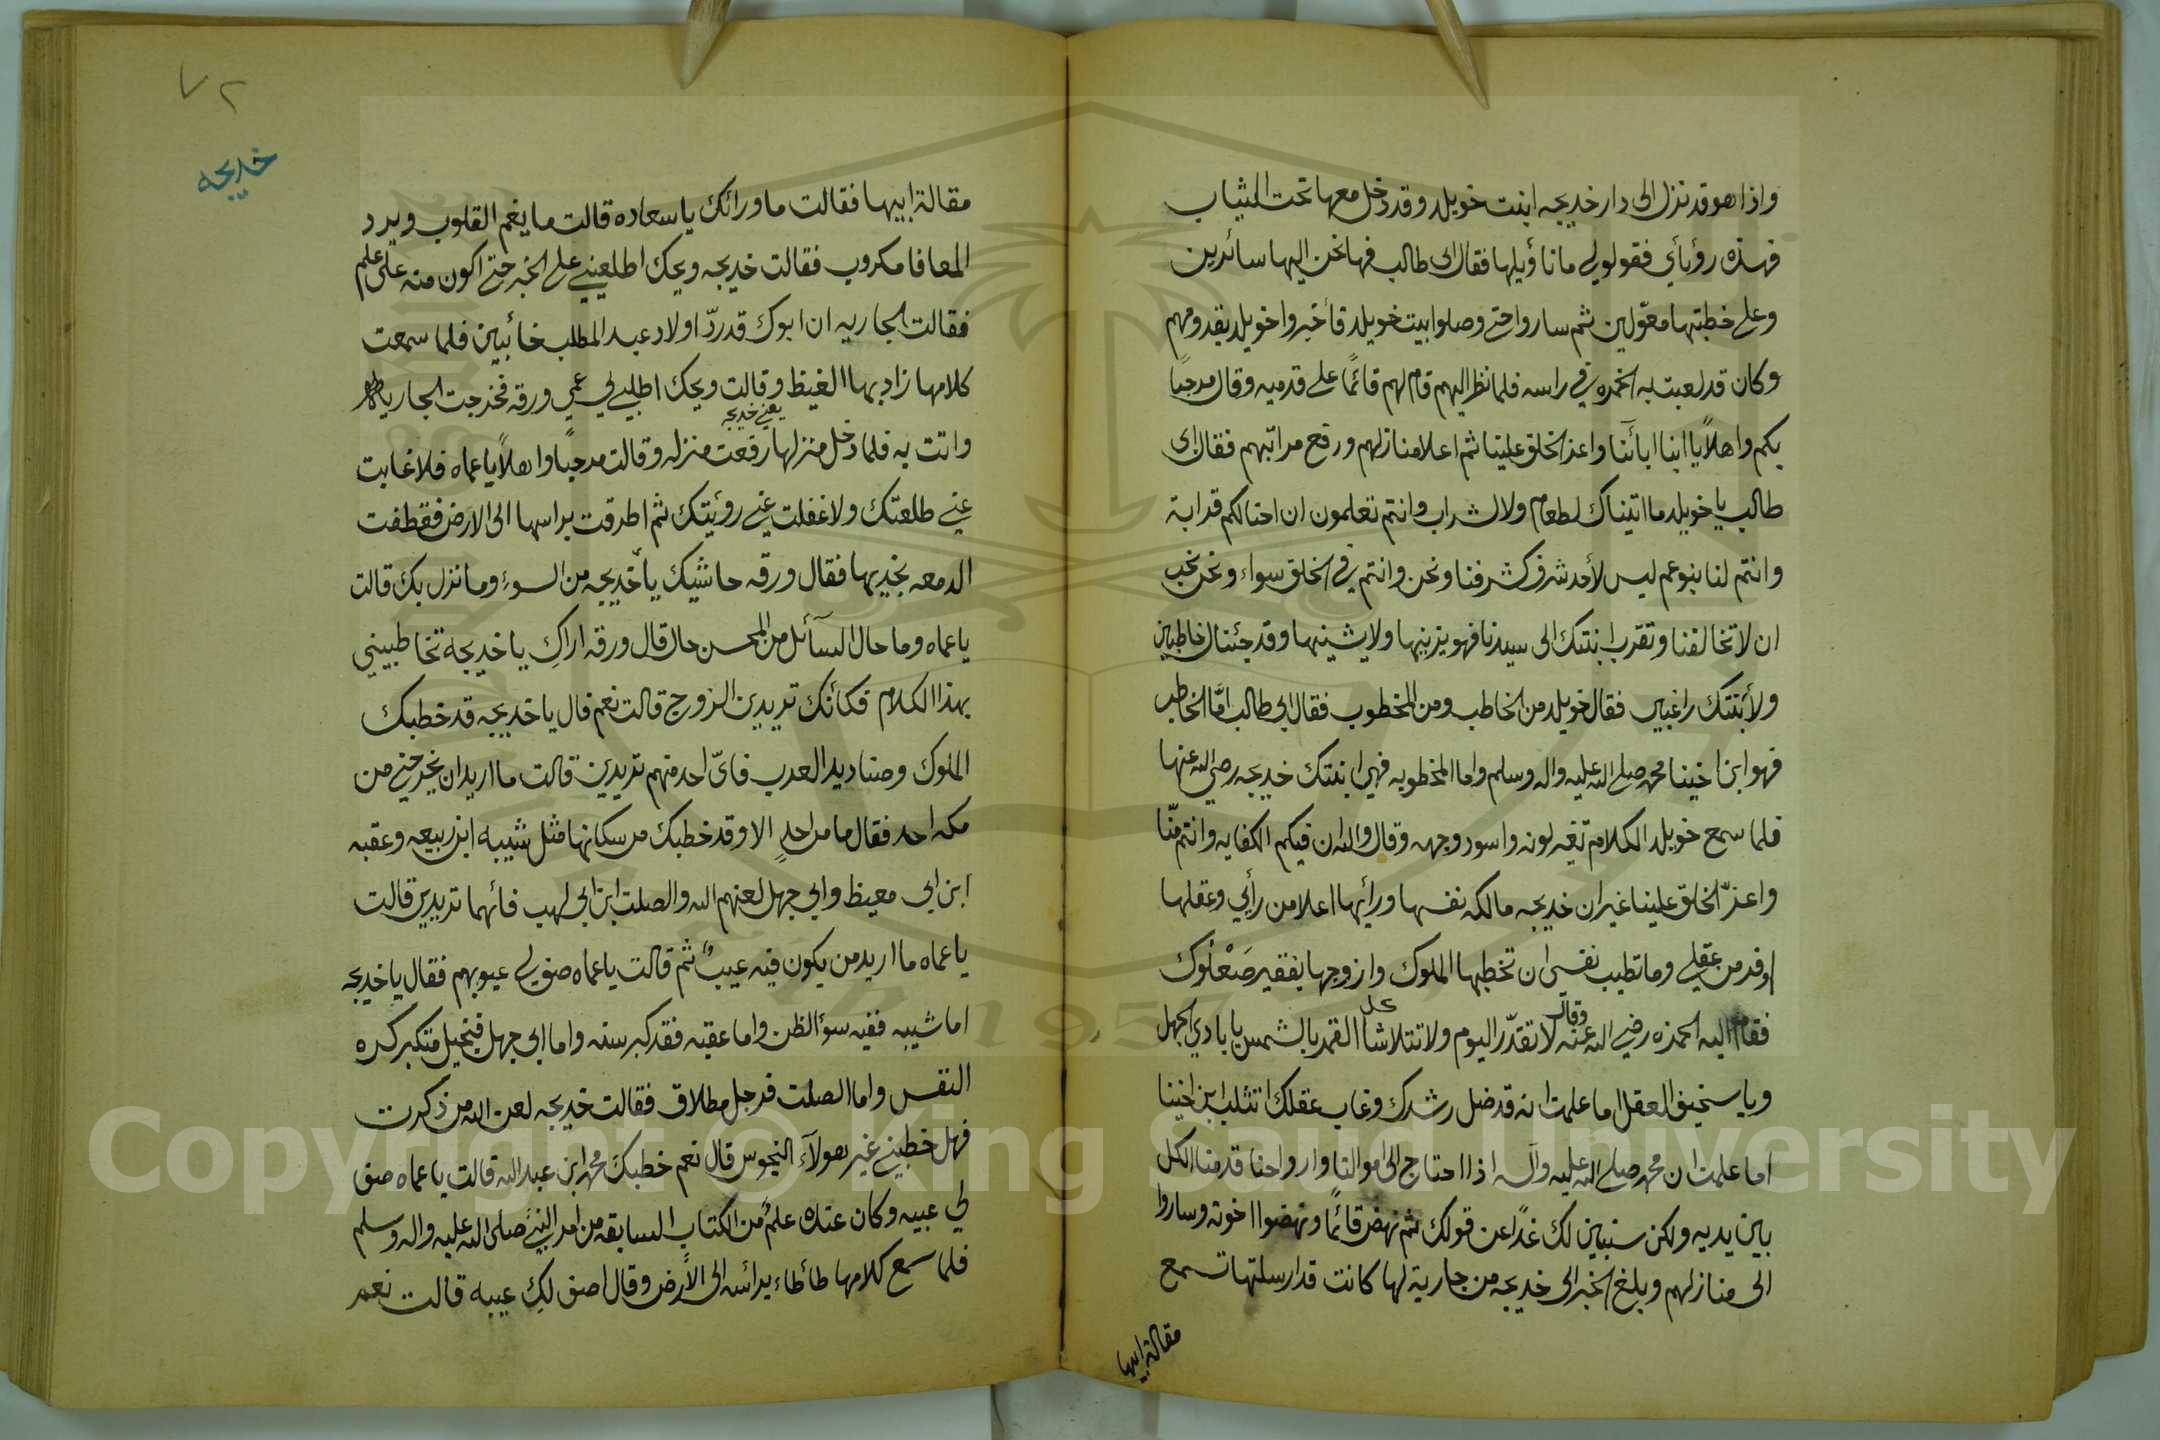 واذا هو قد نزل الى دار خديجه ابنت خويلد وقد دخل معها تحت الثياب
فهذه رؤيأي فقولولي ما تأويلها فقال ابي طالب فها نحن اليها سائرين
وعلى خطبتها معوّلين ثم ساروا حتى وصلوا بيت خويلد فأخبروا خويلد بقدومهم
وكان قد لعبت به الخمره في راسه فلما نظر اليهم قام لهم قائمًا على قدميه وقال مرحبًا
بكم واهلًا يا ابنا ابائنا واعز الخلق علينا ثم اعلا منازلهم ورفع مراتبهم فقال ابى
طالب يا خويلد ما اتيناك لطعام ولا شراب وانتم تعلمون ان احنا لكم قرابة
وانتم لنا بنو عم ليس لأحد شرف كشرفنا ونحن وانتم في الخلق سواء ونحن نحب
ان لا تخالفنا وتقرب ابنتك الى سيدنا فهو يزينها ولا يشينها وقد جئناك خاطبين
ولأبنتك راغبين فقال خويلد من الخاطب ومن المخطوب فقال ابي طالب امّا الخاطب
فهو ابن اخينا محمد صلى الله عليه واله وسلم واما المخطوبه فهي ابنتك خديجه رضي الله عنها
فلما سمع خويلد الكلام تغير لونه واسود وجهه وقال والله ان فيكم الكفايه وانتم منّا
واعزّ الخلق علينا غير ان خديجه مالكه نفسها ورأيها اعلا من رأيي وعقلها
اوفر من عقلي وما تطيب نفسي ان تخطبها الملوك وازوجها بفقير صَعْلوك
فقام اليه الحمزه رضي الله عنه وقال لا تقدّر اليوم ولا تتلاشا القمر بالشمس يا بادي الجهل
ويا سخيف العقل اما علمت انه قد ضل رشدك وغاب عقلك اتثلب ابن اخينا
اما علمت ان محمد صلى الله عليه وآله اذا احتاج الى اموالنا وارواحنا قدمنا الكل
بين يديه ولكن سنبين لك غدًا عن قولك ثم نهض قائمًا ونهضوا اخوته وساروا
الى منازلهم وبلغ الخبر الى خديجه من جارية لها كانت قد ارسلتها تسمع
مقالة ابيها
٧٢
خديجه
مقالة ابيها فقالت ما ورائك يا سعاده قالت ما يغم القلوب ويرد
المعافا مكروب فقالت خديجه ويحك اطلعيني على الخبر حتى اكون منه على علم
فقالت الجاريه ان ابوك قد ردّ اولاد عبد المطلب خائبين فلما سمعت
كلامها زاد بها الغيظ وقالت ويحك اطلبي لي عمي ورقه فخرجت الجاريه
يعني خديجه
واتت به فلما دخل منزلها رفعت منزله وقالت مرحبًا واهلًا يا عماه فلا غابت
عني طلعتك ولا غفلت عني رؤيتك ثم اطرقت براسها الى الارض فقطفت
الدمعه بخديها فقال ورقه حاشيك يا خديجه من السوء وما نزل بك قالت
يا عماه وما حال السآئل من المحسن حال قال ورقه اراكِ يا خديجة تخاطبيني
بهذا الكلام فكأنك تريدين الزوج قالت نعم قال يا خديجه قد خطبك
الملوك وصناديد العرب فايّ احد منهم تريدين قالت ما اريد ان يخرجني من
مكه احد فقال ما من احدٍ الا وقد خطبك من سكانها مثل شيبه ابن ربيعه وعقبه
ابن ابي معيط وابي جهل لعنهم الله والصلت ابن ابي لهب فأيهما تريدين قالت
يا عماه ما اريد من يكون فيه عيبٌ ثم قالت يا عماه صف لي عيوبهم فقال يا خديجه
اما شيبه ففيه سؤ الظن واما عقبه فقد كبر سنه واما ابي جهل فبخيل متكبر كره
النفس واما الصلت فرجل مطلاق فقالت خديجه لعن الله من ذكرت
فهل خطبني غير هولآء النجوس قال نعم خطبك محمد ابن عبد الله قالت يا عماه صف
لي عيبه وكان عنده علمٌ من الكتاب السابقه من امر النبي صلى الله عليه واله وسلم
فلما سمع كلامها طأطاء برائسه الى الأرض وقال اصف لكِ عيبه قالت نعم
Copyright © King Saud University
1957